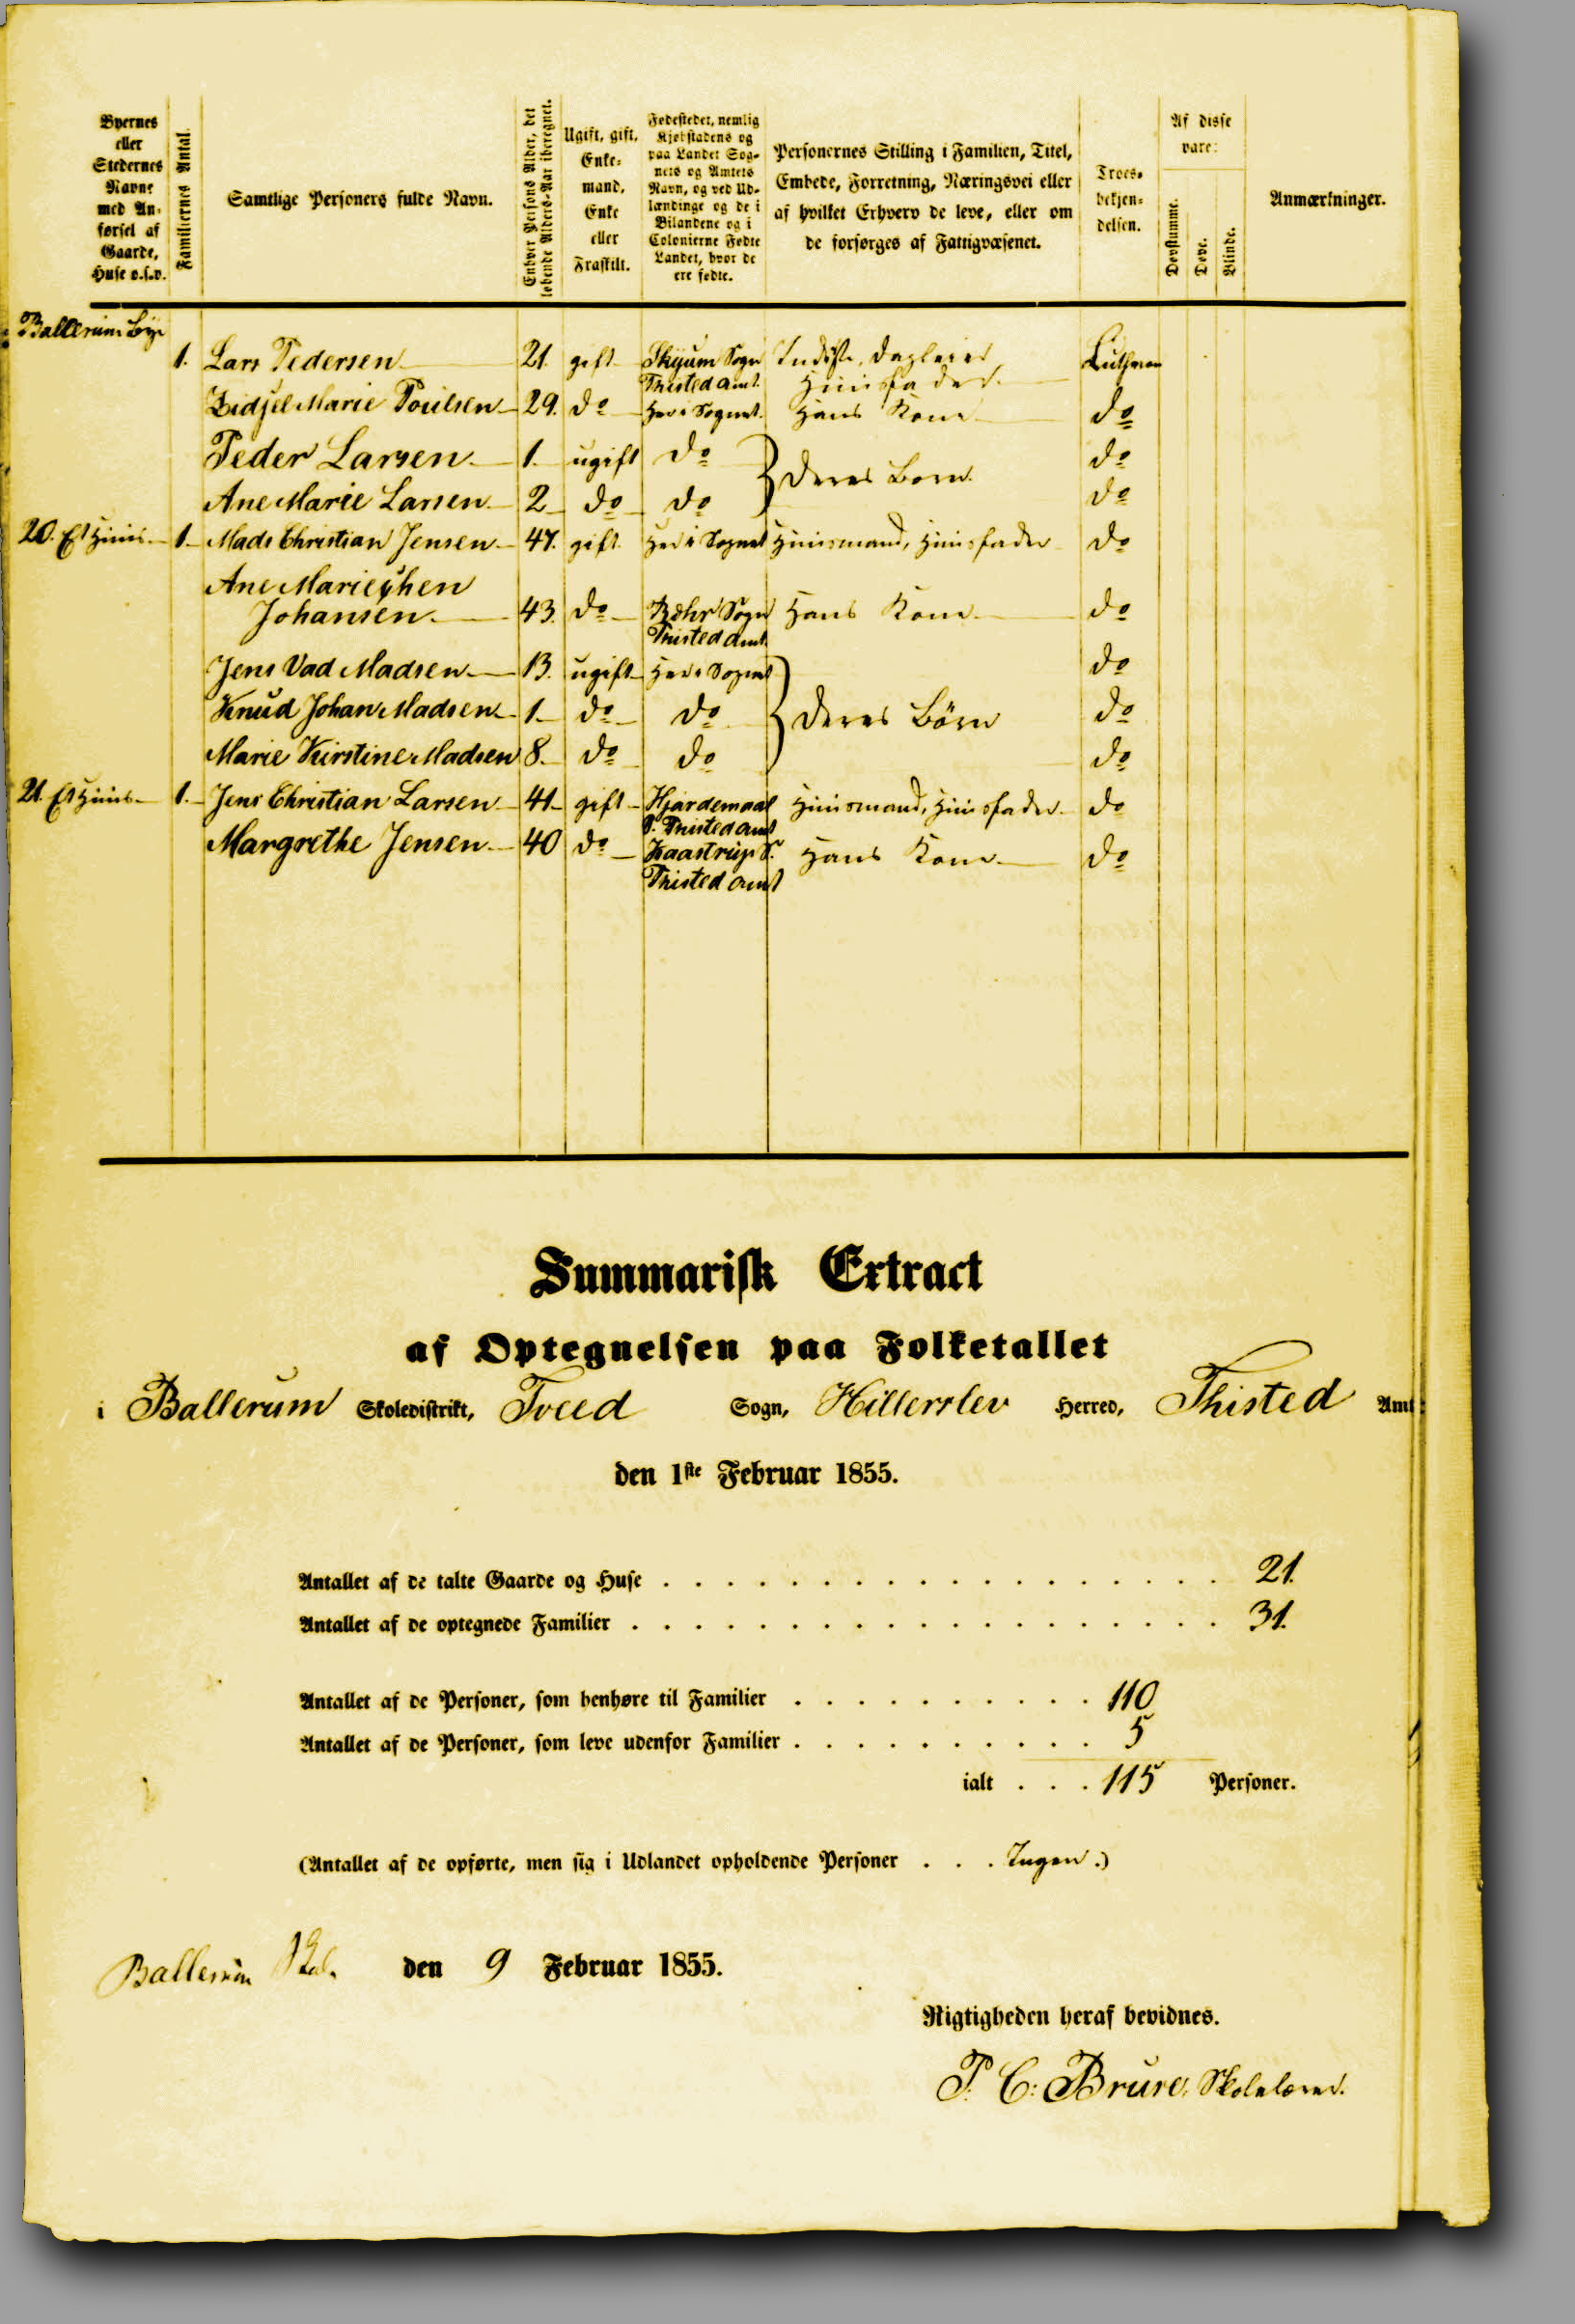 Byernes eller Stedernes Navne med Anførsel af Gaarde, Huse o.s.v.
Familiernes Antal.
Samtlige Personers fulde Navn.
Enhver Persons Alder, det løbende Alders-Aar iberegnet.
Ugift, gift, Enkemand, Enke eller Fraskilt.
Fødestedet, nemlig Kjøbstadens og paa Landet Sognets og Amtets Navn, og ved Udlændinge og de i Bilandene og i Colonierne Fødte Landet, hvor de ere fødte.
Personernes Stilling i Familien, Titel, Embede, Forretning, Næringsvei eller af hvilket Erhverv de leve, eller om de forsørges af Fattigvæsenet.
Troesbekjendelsen.
Af disse vare:
Døvstumme.
Døve.
Blinde.
Anmærkninger.
Ballerum Bye
1. Lars Pedersen 21. gift Skyum Sogn Thisted Amt. Inderste, Dagleier Huusfader. Lutheran
Zidsel Marie Poulsen 29. do Her i Sognet. Hans Kone do
Peder Larsen 1. ugift do } Deres Born do
Ane Marie Larsen 2 do do do
20. Et Huus 1. Mads Christian Jensen 47. gift Her i Sognet Huusmand, Huusfader do
Ane Marie
Johansen. 43. do Sogn Thisted Amt. Hans Kone do
Jens Vad Madsen 13. ugift Her i Sognet } do
Knud Johan Madsen 1. do do Deres Børn do
Marie Kirstine Madsen 8. do do do
21. Et Huus 1. Jens Christian Larsen 41 gift Hjardemaal S. Thisted Amt Huusmand, Huusfader do
Margrethe Jensen 40 do Kaastrup S. Thisted Amt Hans Kone do
Summarisk Extract
af Optegnelsen paa Folketallet
i Ballerum Skoledistrikt, Tveed Sogn, Hillerslev Herred, Thisted Amt:
den 1ste Februar 1855.
Antallet af de talte Gaarde og Huse . . . 21.
Antallet af de optegnede Familier . . . 31.
Antallet af de Personer, som henhøre til Familier . . . 110
Antallet af de Personer, som leve udenfor Familier . . . 5
ialt . . . 115 Personer.
(Antallet af de opførte, men sig i Udlandet opholdende Personer . . . Ingen.)
Ballerum den 9 Februar 1855.
Rigtigheden heraf bevidnes.
P. C. Skolelærer.